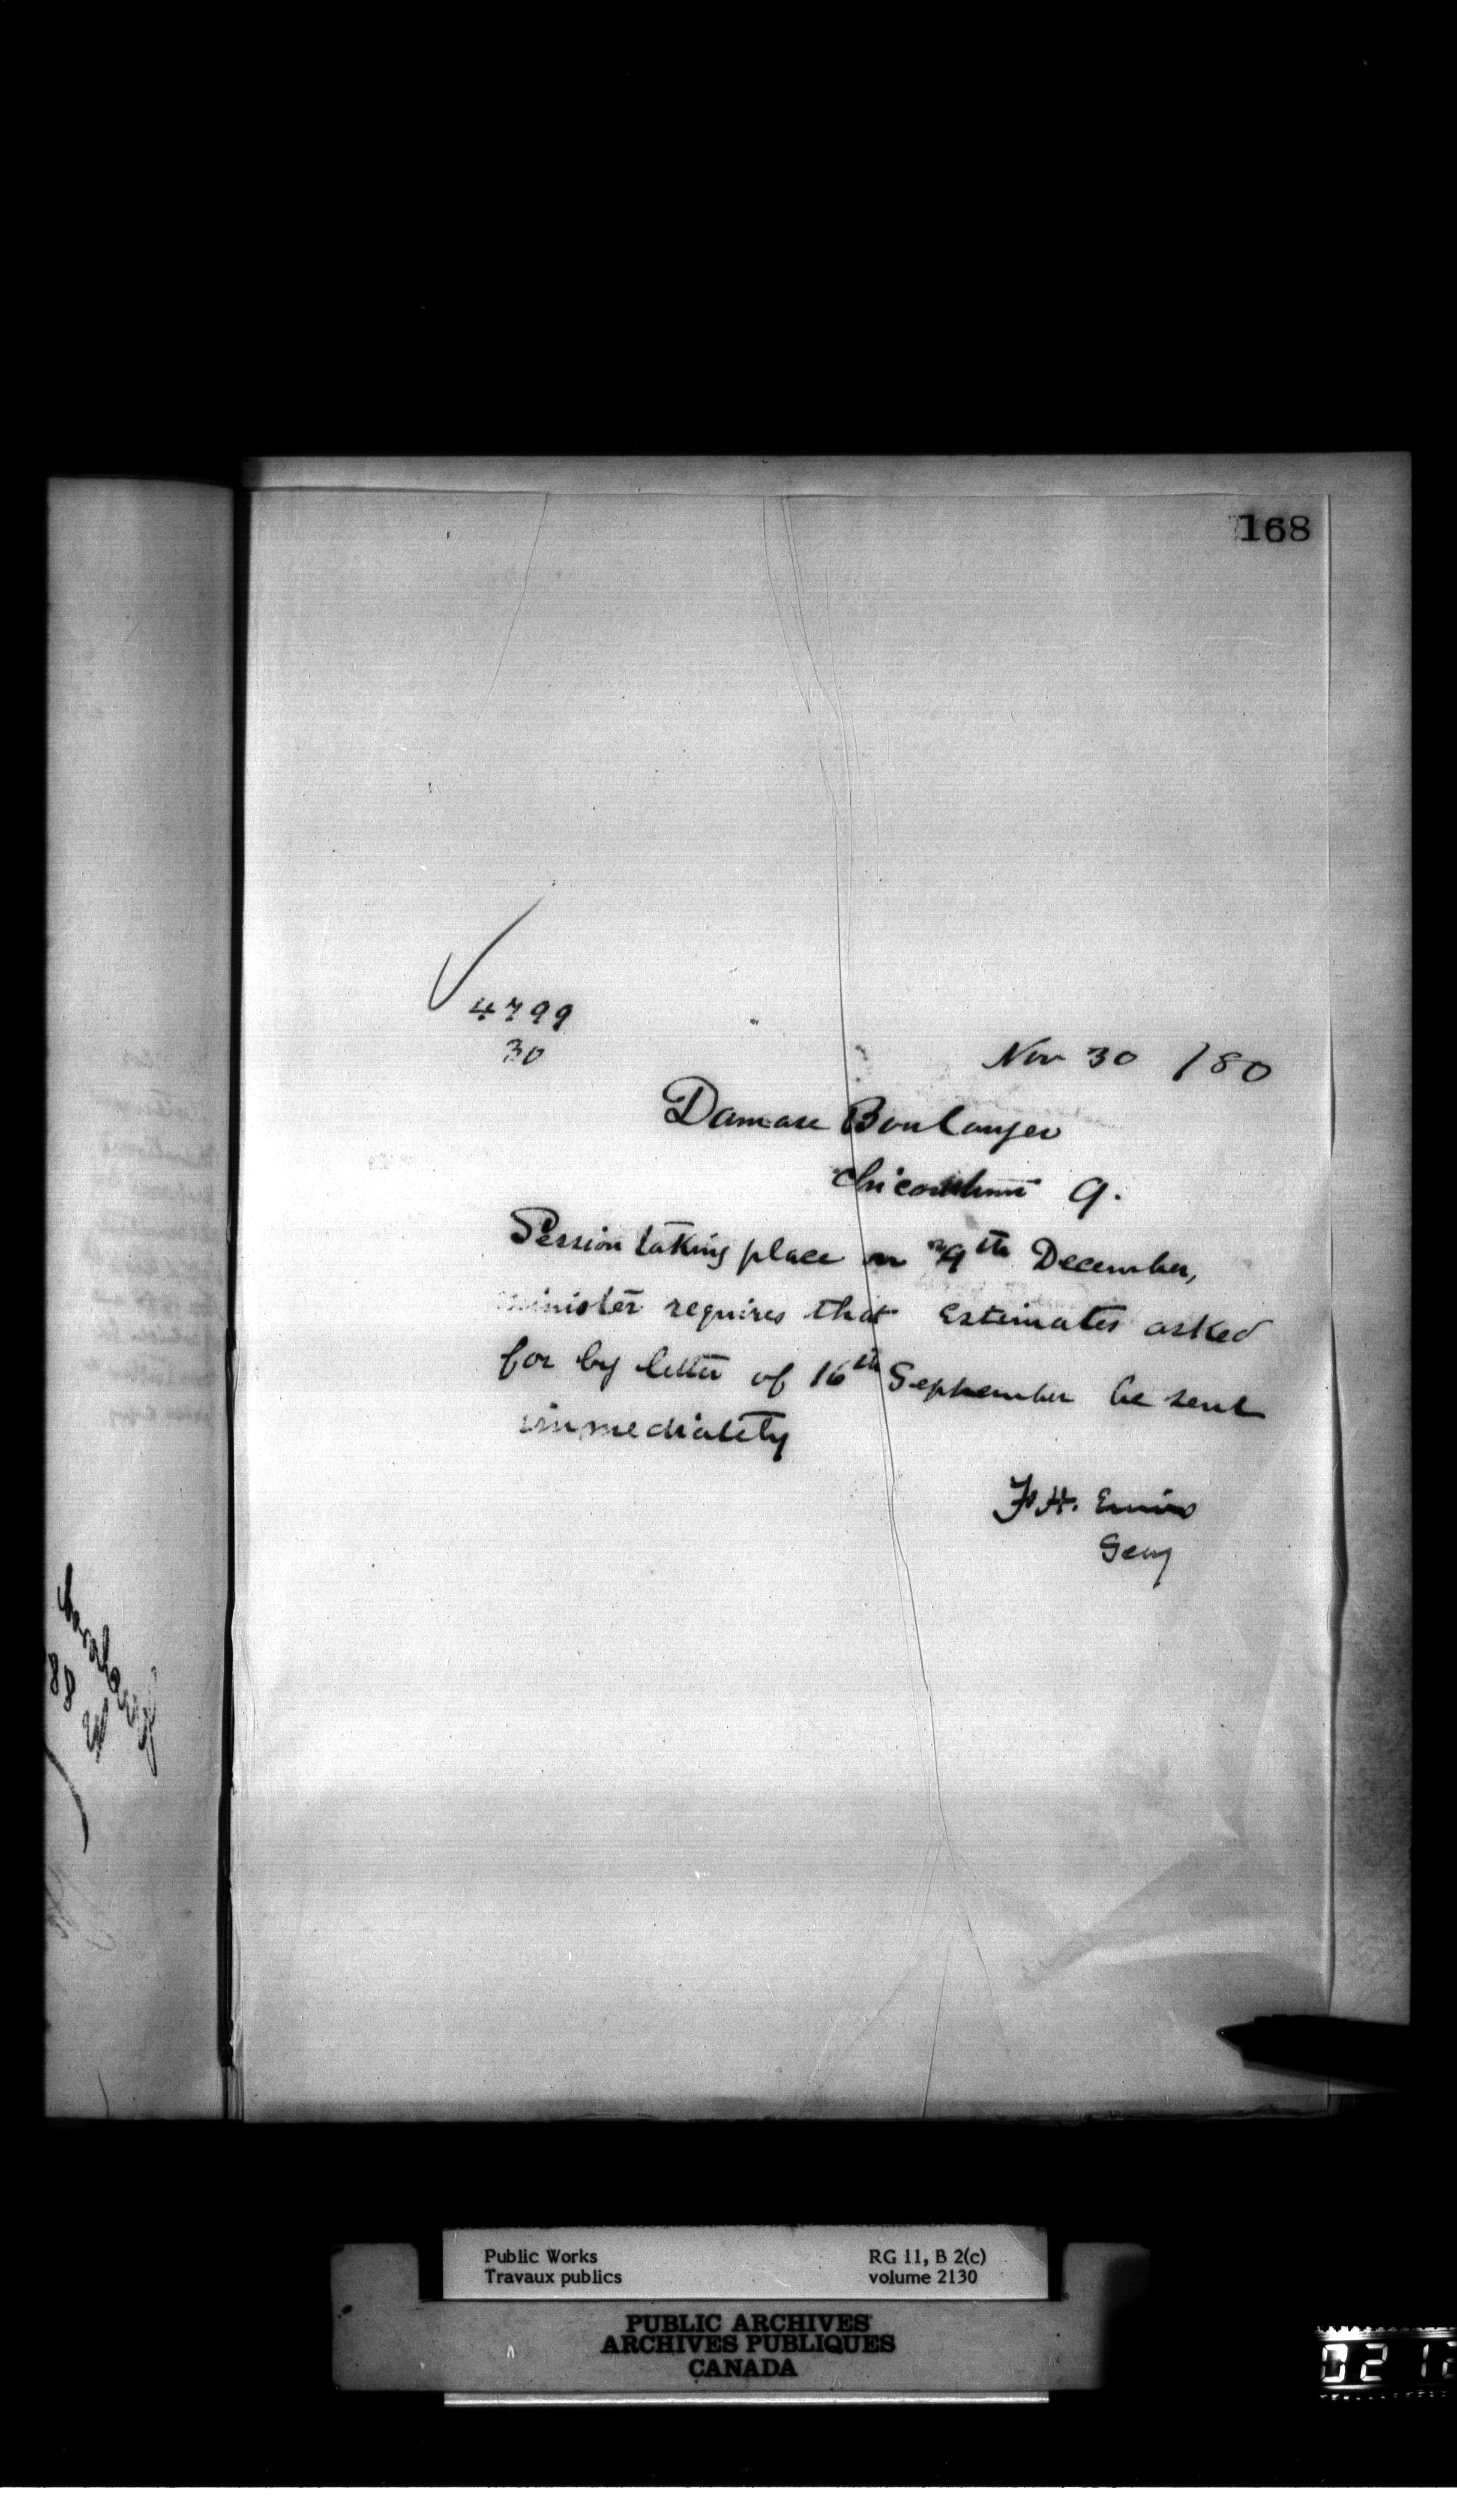 168
4799
30
Nov 30 /80
Damase Boulanger
Chicoutimi Q.
Session taking place on 9th December,
Minister requires that Estimates asked
for by letter of 16th September be sent
immediately
F. H. Ennis
Secy
88
Public Works
Travaux publics
RG 11, B 2(c)
volume 2130
PUBLIC ARCHIVES
ARCHIVES PUBLIQUES
CANADA